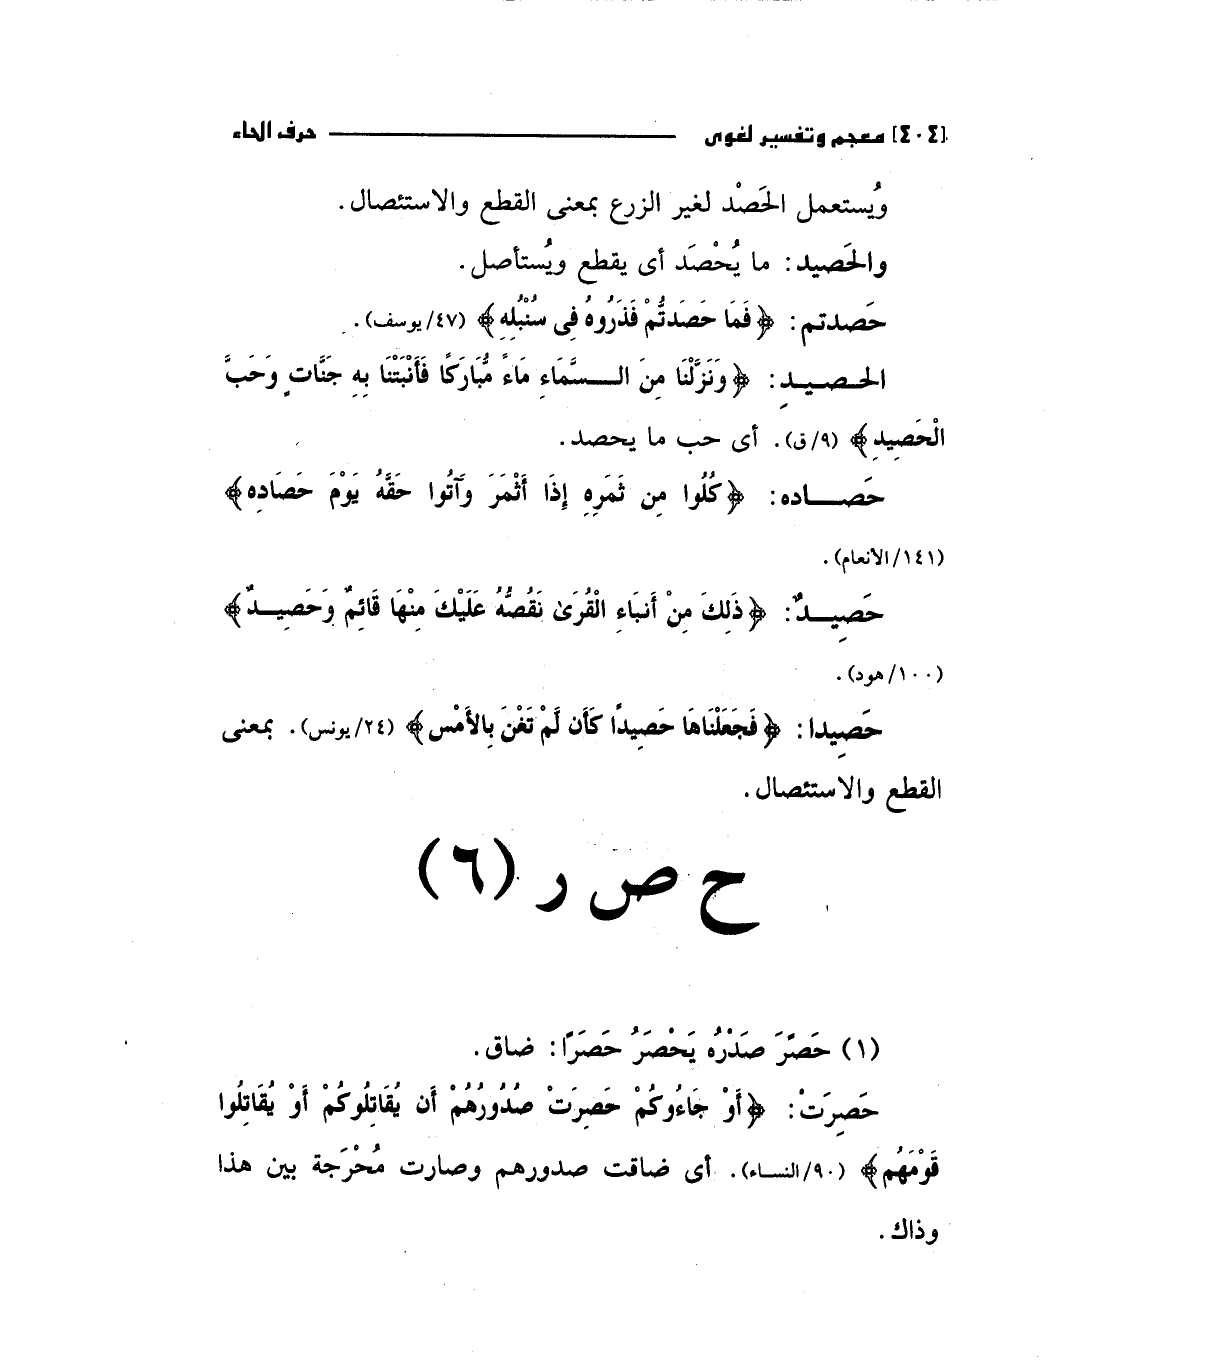 [٤٠٤] معجم وتفسير لغوى حرف الحاء
ويُستعمل الحَصْد لغير الزرع بمعنى القطع والاستئصال.
والحَصيد: ما يُحْصَد أى يقطع ويُستأصل.
حَصدتم: ﴿فَمَا حَصَدتُّمْ فَذَرُوهُ فِى سُنْبُلِهِ﴾ (٤٧/يوسف).
الحصيدِ: ﴿وَنَزَّلْنَا مِنَ السَّمَاءِ مَاءً مُّبَارَكًا فَأَنْبَتْنَا بِهِ جَنَّاتٍ وَحَبَّ
الْحَصِيدِ﴾ (٩/ق). أى حب ما يحصد.
حَصاده: ﴿كُلُوا مِن ثَمَرِهِ إِذَا أَثْمَرَ وَآتُوا حَقَّهُ يَوْمَ حَصَادِهِ﴾
(١٤١/الأنعام).
حَصِيدٌ: ﴿ذَلِكَ مِنْ أَنبَاءِ الْقُرَىٰ نَقُصُّهُ عَلَيْكَ مِنْهَا قَائِمٌ وَحَصِيدٌ﴾
(١٠٠/هود).
حَصِيدا: ﴿فَجَعَلْنَاهَا حَصِيدًا كَأَن لَّمْ تَغْنَ بِالأَمْسِ﴾ (٢٤/يونس). بمعنى
القطع والاستئصال.
ح ص ر (٦)
(١) حَصِرَ صَدْرُه يَحْصَرُ حَصَرًا: ضاق.
حَصِرَتْ: ﴿أَوْ جَاءُوكُمْ حَصِرَتْ صُدُورُهُمْ أَن يُقَاتِلُوكُمْ أَوْ يُقَاتِلُوا
قَوْمَهُم﴾ (٩٠/النساء). أى ضاقت صدورهم وصارت مُحْرَجة بين هذا
وذاك.